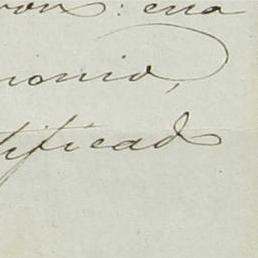 ron: ena
monio,
tificad